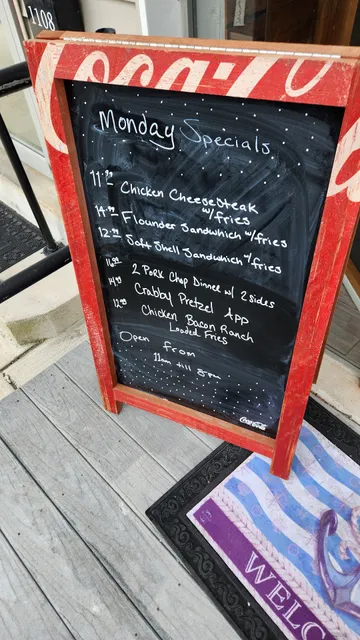 1108
Coca-Co
Monday Specials
11.99 Chicken Cheesesteak
w/fries
14.99 Flounder Sandwhich w/fries
12.99 Soft Shell Sandwhich w/fries
2 Pork Chop Dinner w/ 2 sides
Crabby Pretzel App
Chicken Bacon Ranch
Loaded Fries
Open from
11am till 8pm
Coca-Cola
WELC